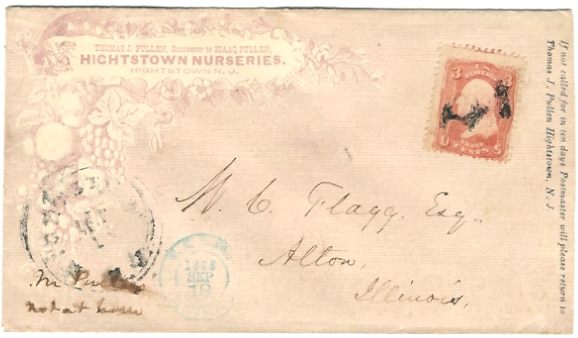 THOMAS J. PULLEN, Successor to ISAAC PULLEN,
HIGHTSTOWN NURSERIES.
HIGHTSTOWN N. J.
3 POSTAGE 3
U THREE CENTS S
If not called for in ten days Postmaster will please return to
Thomas J. Pullen Hightstown, N. J
W. C. Flagg, Esq.
Alton,
Illinois,
SEP
not at home